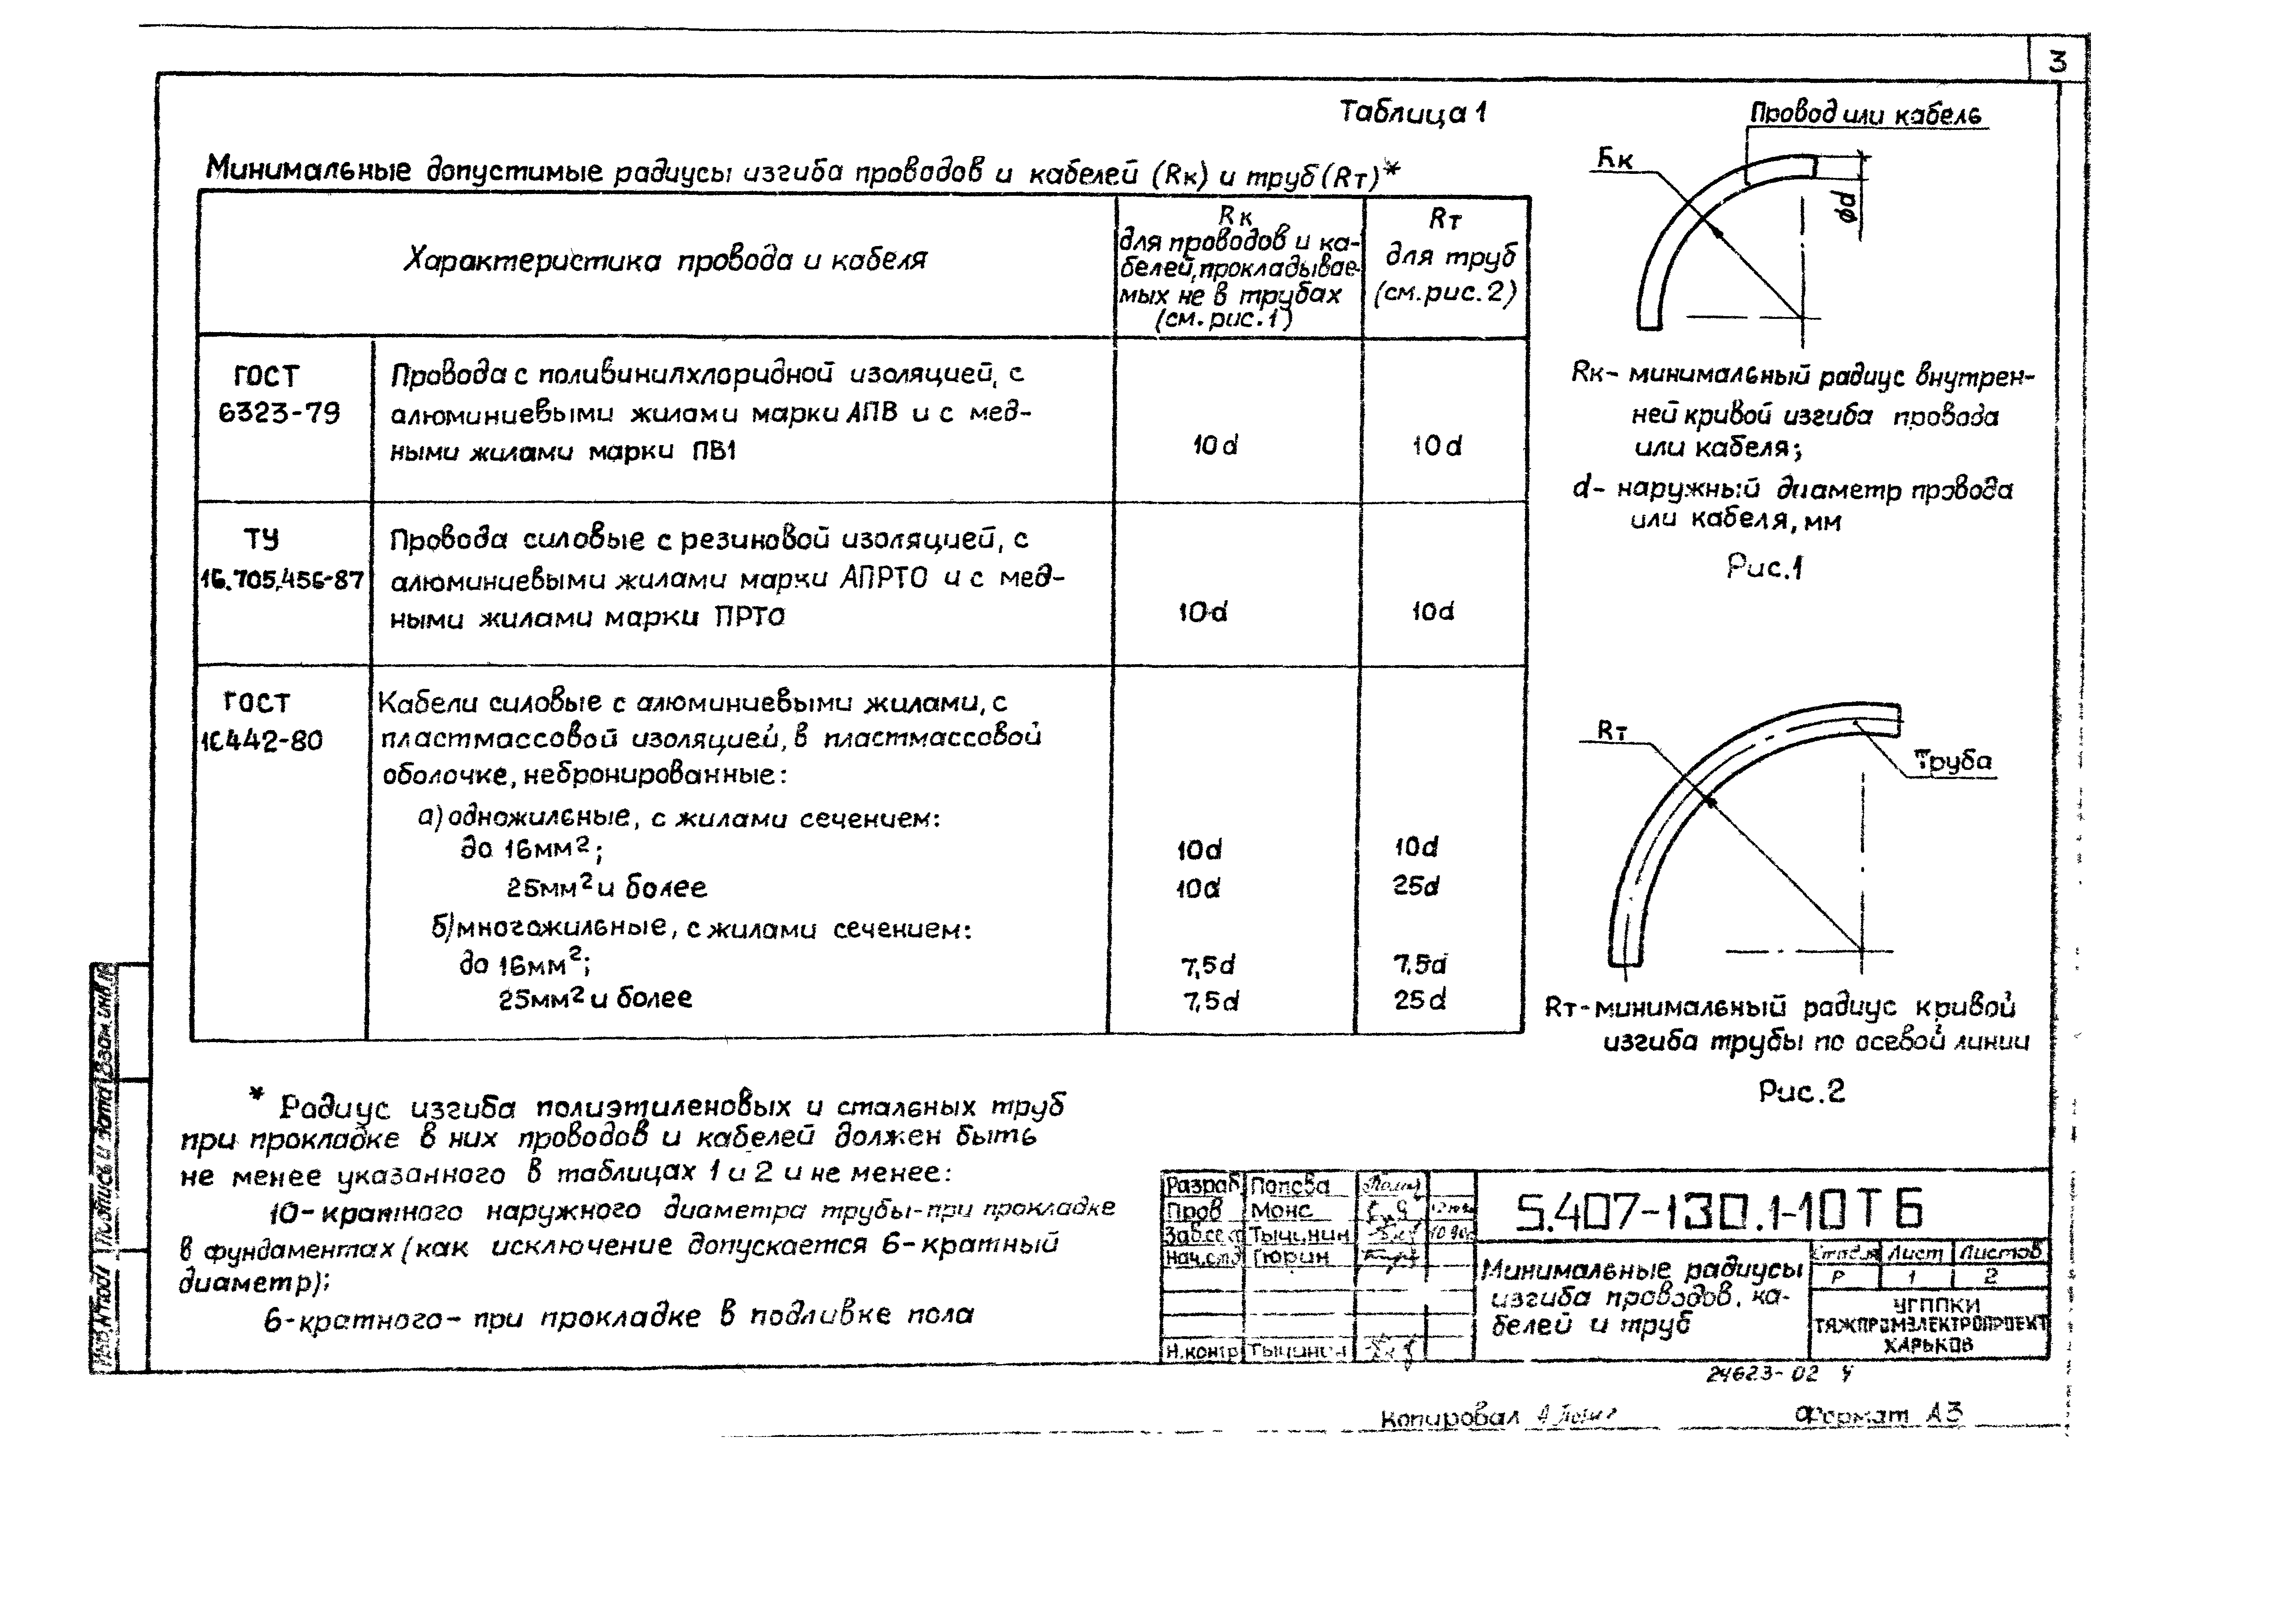 3
Таблица 1
Минимальные допустимые радиусы изгиба проводов и кабелей (Rк) и труб (Rт)*
Характеристика провода и кабеля
Rк
для проводов и ка-
белей, прокладывае-
мых не в трубах
(см. рис. 1)
Rт
для труб
(см. рис. 2)
ГОСТ
6323-79
Провода с поливинилхлоридной изоляцией, с
алюминиевыми жилами марки АПВ и с мед-
ными жилами марки ПВ1
10d
10d
ТУ
16.705.456-87
Провода силовые с резиновой изоляцией, с
алюминиевыми жилами марки АПРТО и с мед-
ными жилами марки ПРТО
10d
10d
ГОСТ
16442-80
Кабели силовые с алюминиевыми жилами, с
пластмассовой изоляцией, в пластмассовой
оболочке, небронированные:
а) одножильные, с жилами сечением:
до 16мм²; 10d 10d
25мм² и более 10d 25d
б) многожильные, с жилами сечением:
до 16мм²; 7,5d 7,5d
25мм² и более 7,5d 25d
Провод или кабель
Rк
ϕd
Rк- минимальный радиус внутрен-
ней кривой изгиба провода
или кабеля;
d- наружный диаметр провода
или кабеля, мм
Рис.1
Rт
Труба
Rт-минимальный радиус кривой
изгиба трубы по осевой линии
Рис.2
* Радиус изгиба полиэтиленовых и стальных труб
при прокладке в них проводов и кабелей должен быть
не менее указанного в таблицах 1 и 2 и не менее:
10-кратного наружного диаметра трубы-при прокладке
в фундаментах (как исключение допускается 6-кратный
диаметр);
6-кратного- при прокладке в подливке пола
Разраб Попова
Пров Монс
Зав.сект Тычинин 10.90г
Нач.отд Тюрин
Н.контр Тычинин
5.407-130.1-10ТБ
Минимальные радиусы
изгиба проводов, ка-
белей и труб
Стадия Лист Листов
Р 1 2
УГППКИ
ТЯЖПРОМЭЛЕКТРОПРОЕКТ
ХАРЬКОВ
24623-02 4
Копировал
Формат А3
Взам.инв.№
Подпись и дата
Инв.№ подл